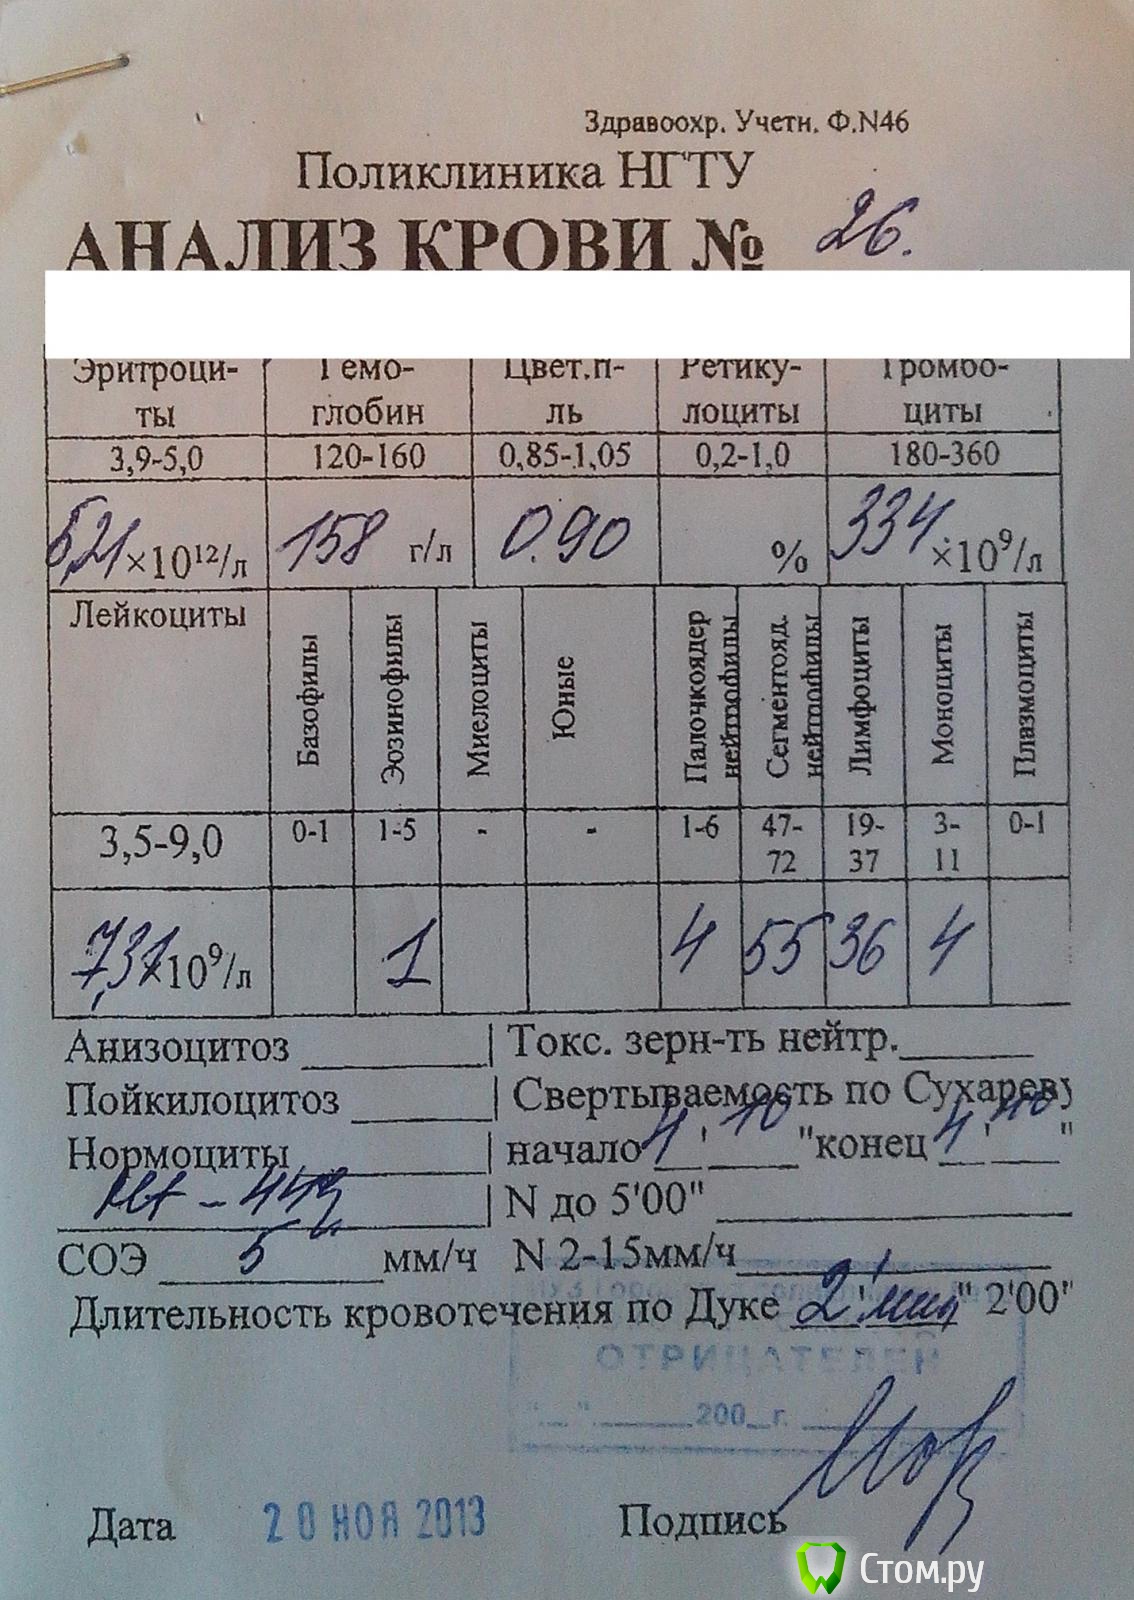 Здравоохр. Учетн. Ф.N46
Поликлиника НГТУ
АНАЛИЗ КРОВИ № 26.
Эритроци-
ты
Гемо-
глобин
Цвет.п-
ль
Ретику-
лоциты
Тромбо-
циты
3,9-5,0 120-160 0,85-1,05 0,2-1,0 180-360
5,21 ×10¹²/л 158 г/л 0.90 % 334 ×10⁹/л
Лейкоциты
Базофилы
Эозинофилы
Миелоциты
Юные
Палочкоядер
нейтрофилы
Сегментояд.
нейтрофилы
Лимфоциты
Моноциты
Плазмоциты
3,5-9,0 0-1 1-5 - - 1-6 47-72 19-37 3-11 0-1
7,31 10⁹/л 1 4 55 36 4
Анизоцитоз ______ | Токс. зерн-ть нейтр.______
Пойкилоцитоз ______ | Свертываемость по Сухареву
Нормоциты ______ | начало 4 ' 10 "конец 4 ' 40 "
Ht - 44 | N до 5'00" ______
СОЭ 5 мм/ч N 2-15мм/ч______
Длительность кровотечения по Дуке 2' мин" 2'00"
ОТРИЦАТЕЛЕН
"_"______200_г.
Дата 20 НОЯ 2013 Подпись
Стом.ру